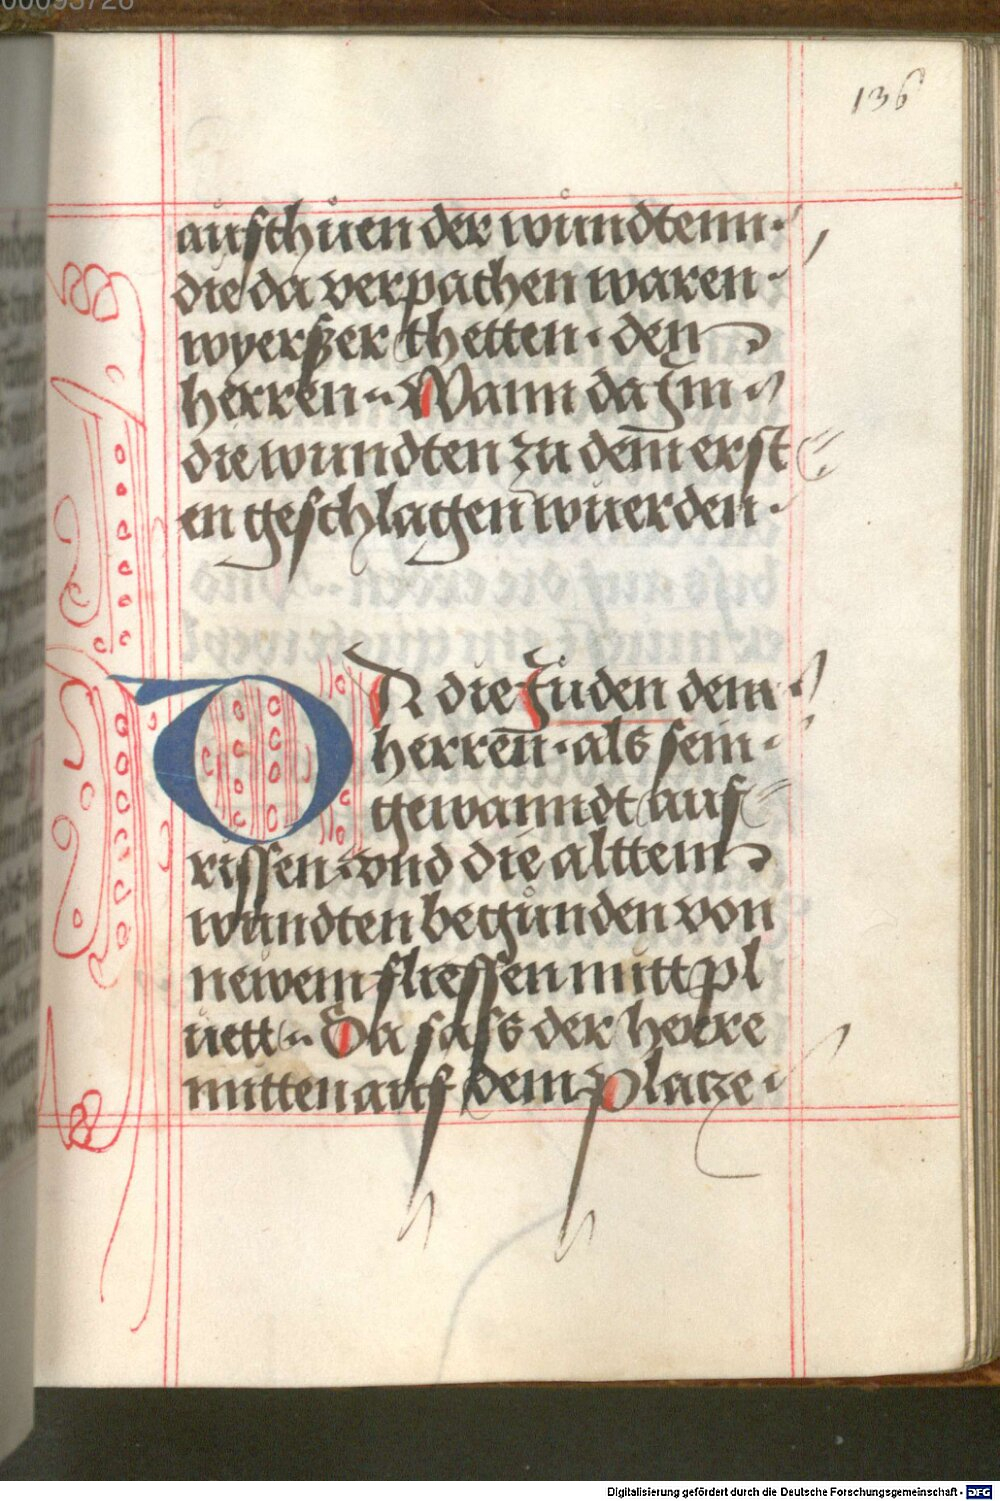 00093726
136
aufthuen der wůndtenn·
die da verpachen waren·
wyerßer thetten· den
herren·· Wann da Jm·
die wundten zu dem erst
en geschlagen wuerden·
DR die Juden dem
herren·als sein·
gewanndt auf
rissen·vnd die alttenn
wundten begůnden von
newem fliessen mitt pl
uett·· Da sass der herre
mitten auf dem placze·
Digitalisierung gefördert durch die Deutsche Forschungsgemeinschaft - DFG